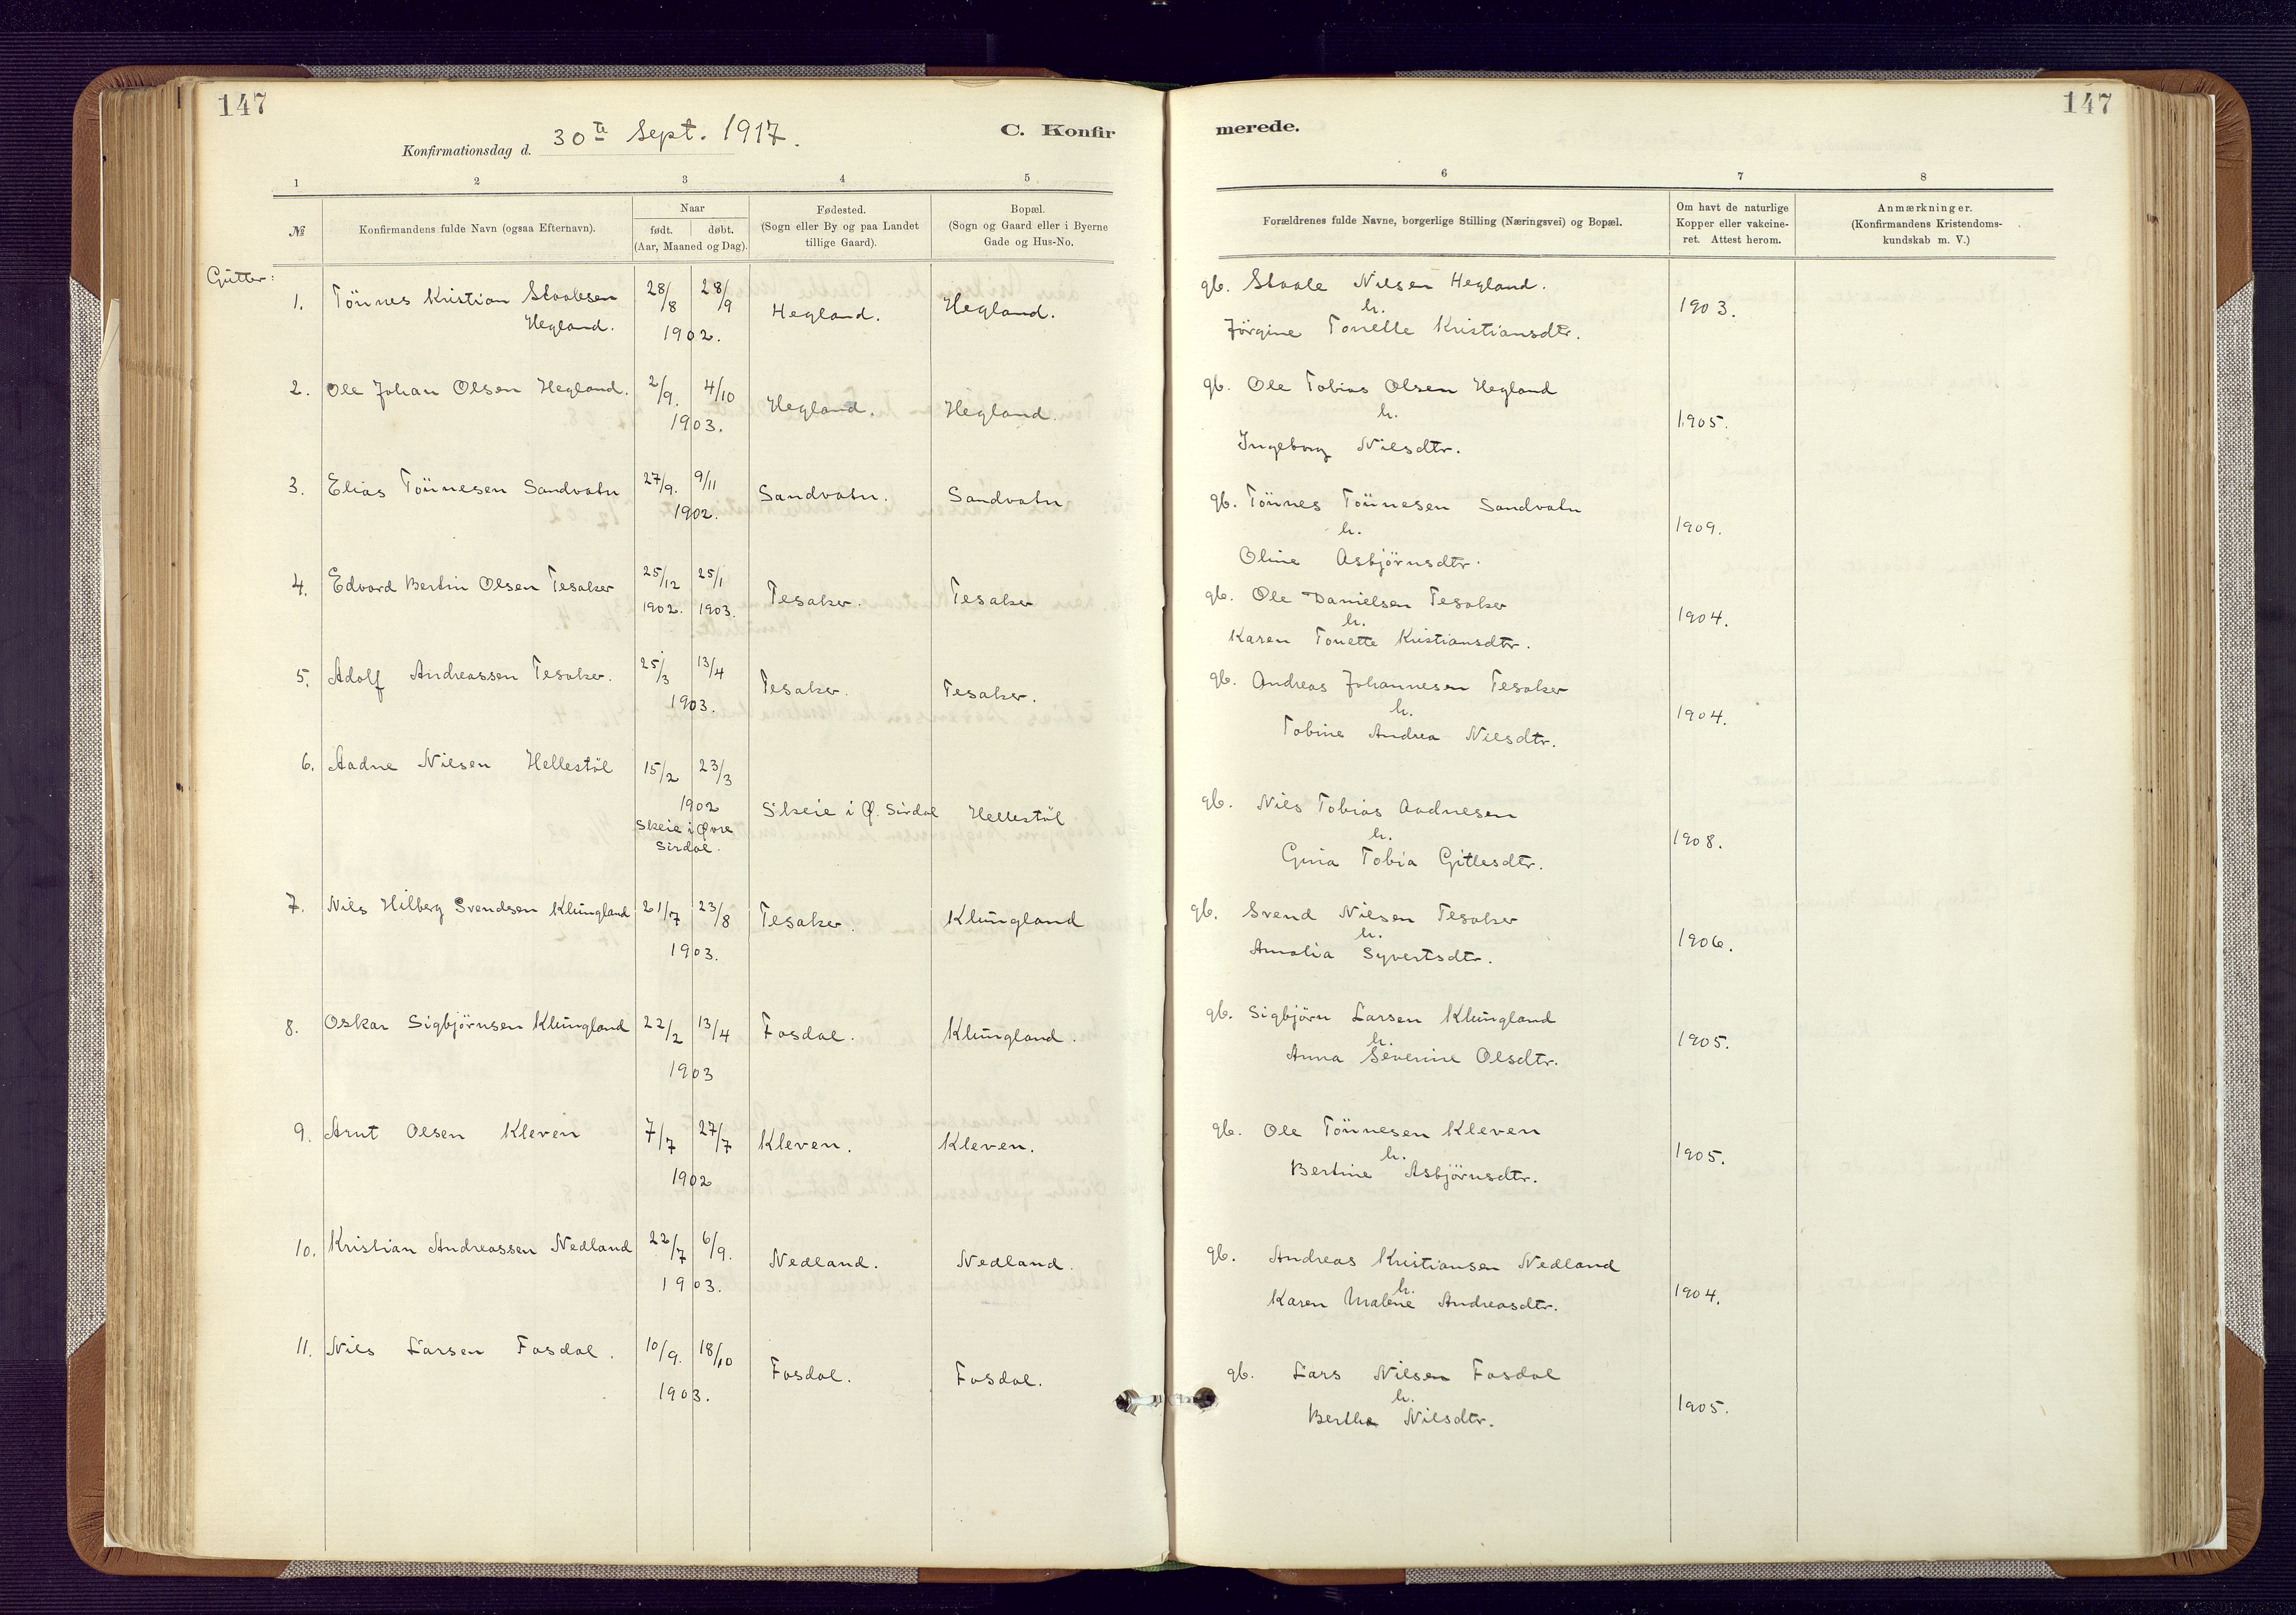 147
147
Konfirmationsdag d. 30te Sept. 1917.
C. Konfir
merede.
1 2 3 4 5
6 7 8
№
Konfirmandens fulde Navn (ogsaa Efternavn).
Naar
født. døbt.
(Aar, Maaned og Dag).
Fødested.
(Sogn eller By og paa Landet
tillige Gaard).
Bopæl.
(Sogn og Gaard eller i Byerne
Gade og Hus-No.
Forældrenes fulde Navne, borgerlige Stilling (Næringsvei) og Bopæl.
Om havt de naturlige
Kopper eller vakcine-
ret. Attest herom.
Anmærkninger.
(Konfirmandens Kristendoms-
kundskab m. V.)
Gutter:
1. Tönnes Kristian Staalesen 28/8 28/9 Hegland. Hegland. gb. Staale Nilsen Hegland. 1903.
Hegland. 1902. h.
Jörgine Tonelle Kristiansdtr.
2. Ole Johan Olsen Hegland. 2/9. 4/10 Hegland. Hegland. gb. Ole Tobias Olsen Hegland
1903. h. 1905.
Ingeborg Nilsdtr.
3. Elias Tönnesen Sandvatn 27/9. 9/11 Sandvatn. Sandvatn gb. Tönnes Tönnesen Sandvatn
1902. h. 1909.
Oline Asbjörnsdtr.
4. Edvard Bertin Olsen Tesaker 25/12 25/1 Tesaker. Tesaker gb. Ole Danielsen Tesaker
1902. 1903. h. 1904.
Karen Tonette Kristiansdtr.
5. Adolf Andreassen Tesaker. 25/3 13/4 Tesaker. Tesaker. gb. Andreas Johannesen Tesaker
1903. h. 1904.
Tobine Andrea Nilsdtr.
6. Aadne Nilsen Hellestöl 15/2 23/3
1902 Skeie i Ø. Sirdal Hellestöl gb. Nils Tobias Aadnesen
Skeie i Øvre h. 1908.
Sirdal. Gina Tobia Gitlesdtr.
7. Nils Hilberg Svendsen Klungland 21/7 23/8 Tesaker. Klungland gb. Svend Nilsen Tesaker
1903. h. 1906.
Amalia Syvertsdtr.
8. Oskar Sigbjörnsen Klungland 22/2 13/4 Fosdal. Klungland. gb. Sigbjörn Larsen Klungland
1903 h. 1905.
Anna Severine Olsdtr.
9. Arnt Olsen Kleven 7/7 27/7 Kleven. Kleven. gb. Ole Tönnesen Kleven
1902 h. 1905.
Bertine Asbjörnsdtr.
10. Kristian Andreassen Nedland 22/7 6/9. Nedland. Nedland. gb. Andreas Kristiansen Nedland
1903. h. 1904.
Karen Malene Andreasdtr.
11. Nils Larsen Fosdal. 10/9. 18/10 Fosdal. Fosdal. gb. Lars Nilsen Fosdal
1903. h. 1905.
Bertha Nilsdtr.